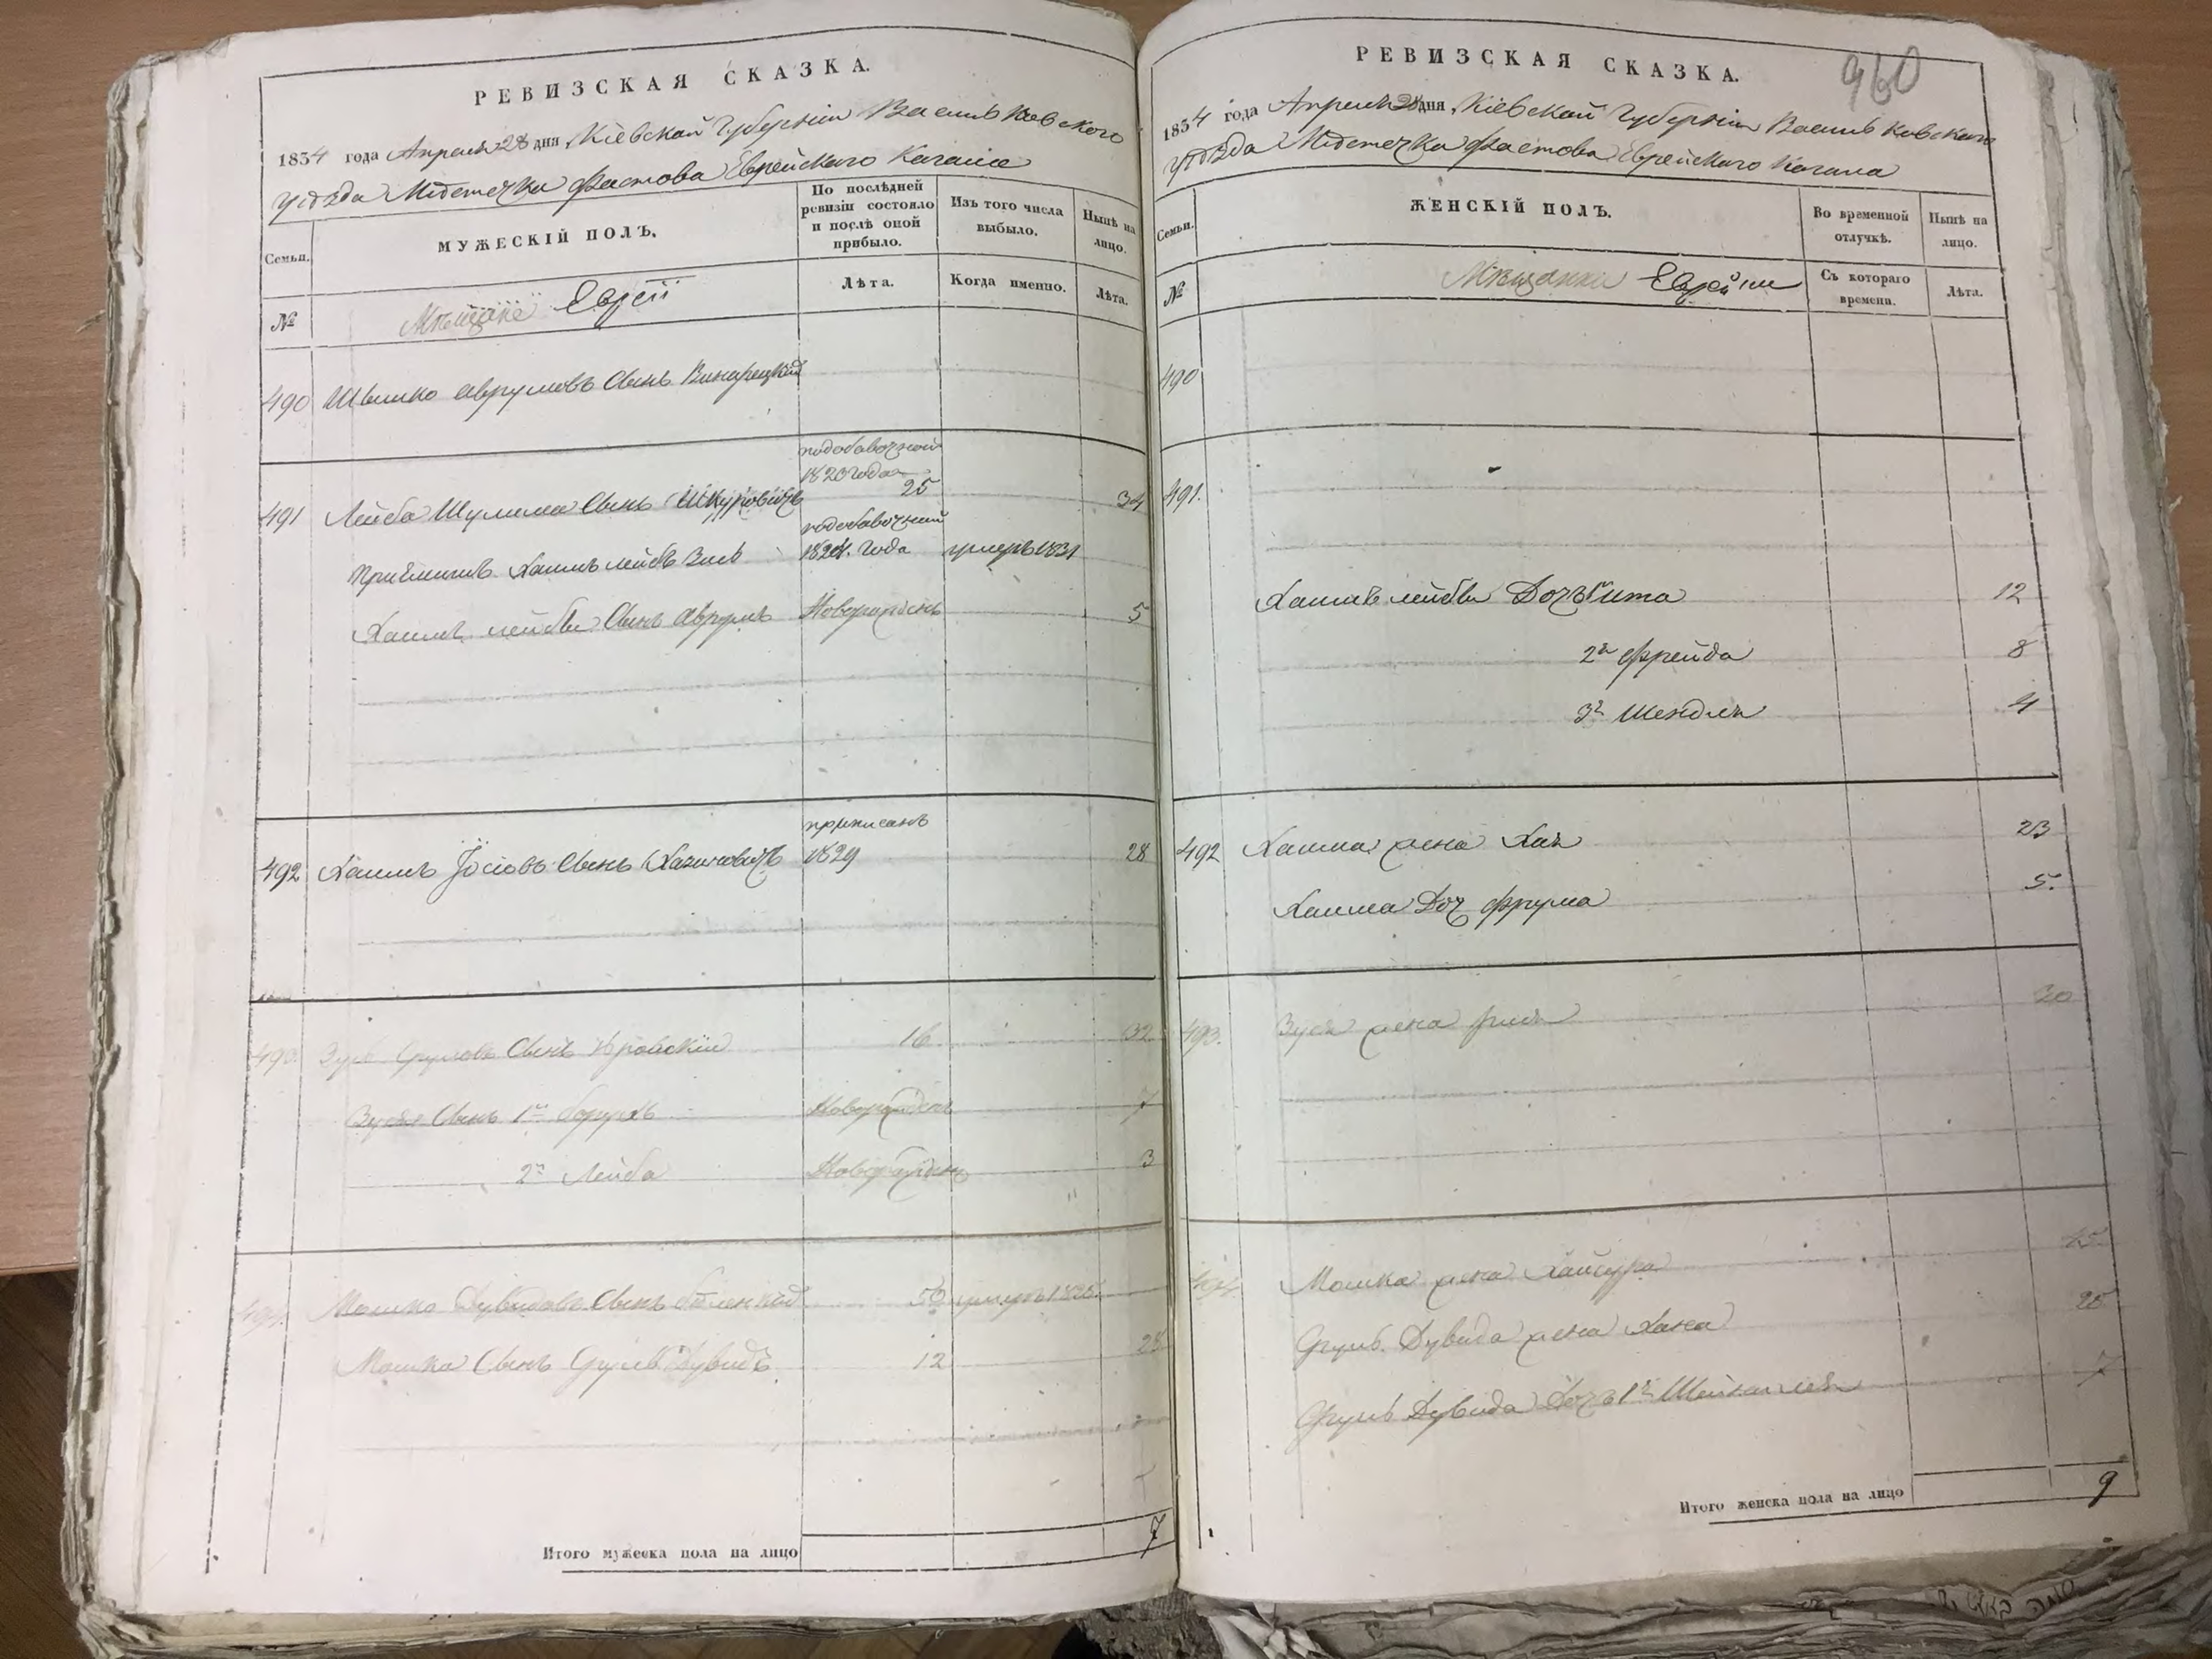 РЕВИЗСКАЯ СКАЗКА.
1834 года Апреля 28 дня, Кіевской Губерніи Васильковского
уѣзда Мѣстечка Фастова Еврейскаго Кагала
Семьи.
МУЖЕСКІЙ ПОЛЪ.
По послѣдней ревизіи состояло и послѣ оной прибыло.
Изъ того числа выбыло.
Нынѣ на лицо.
№
Мѣщане Евреи
Лѣта.
Когда именно.
Лѣта.
490 Шмилко Аврумовъ Сынъ
подобавочной
1820 года
491 Лейба Шулима Сынъ Шкуровичъ 25 34
подобавочной
Приёмышъ Хаимъ Лейбъ 1824. года умеръ 1831
Хаимъ Лейбы Сынъ Аврумъ Новорожденъ 5
приписанъ
492 Хаимъ Іосіовъ Сынъ 1829 28
493 Сруловъ Сынъ 16 32
Зуся Сынъ 1й Борухъ Новорожденъ 7
2й Лейба Новорожденъ 3
494 Мошко Дувидовъ Сынъ 50 умеръ
Мошка Сынъ Сруль Дувидъ 12 28
Итого мужеска пола на лицо 7
960
РЕВИЗСКАЯ СКАЗКА.
1834 года Апреля 28 дня, Кіевской Губерніи Васильковского
уѣзда Мѣстечка Фастова Еврейскаго Кагала
Семьи.
ЖЕНСКІЙ ПОЛЪ.
Во временной отлучкѣ.
Нынѣ на лицо.
№
Мѣщанки Еврейки
Съ котораго времени.
Лѣта.
490
491.
Хаимъ Лейбы Дочь Гита 12
2я Фрейда 8
3я Шендля 4
492 Хаима жена Хая 23
Хаима Доч Фрума 5.
493. Зуся жена 30
494 Мошка жена 45
Сруль Дувида жена Хана 25
Сруль Дувида Дочь 1я 7
Итого женска пола на лицо 9